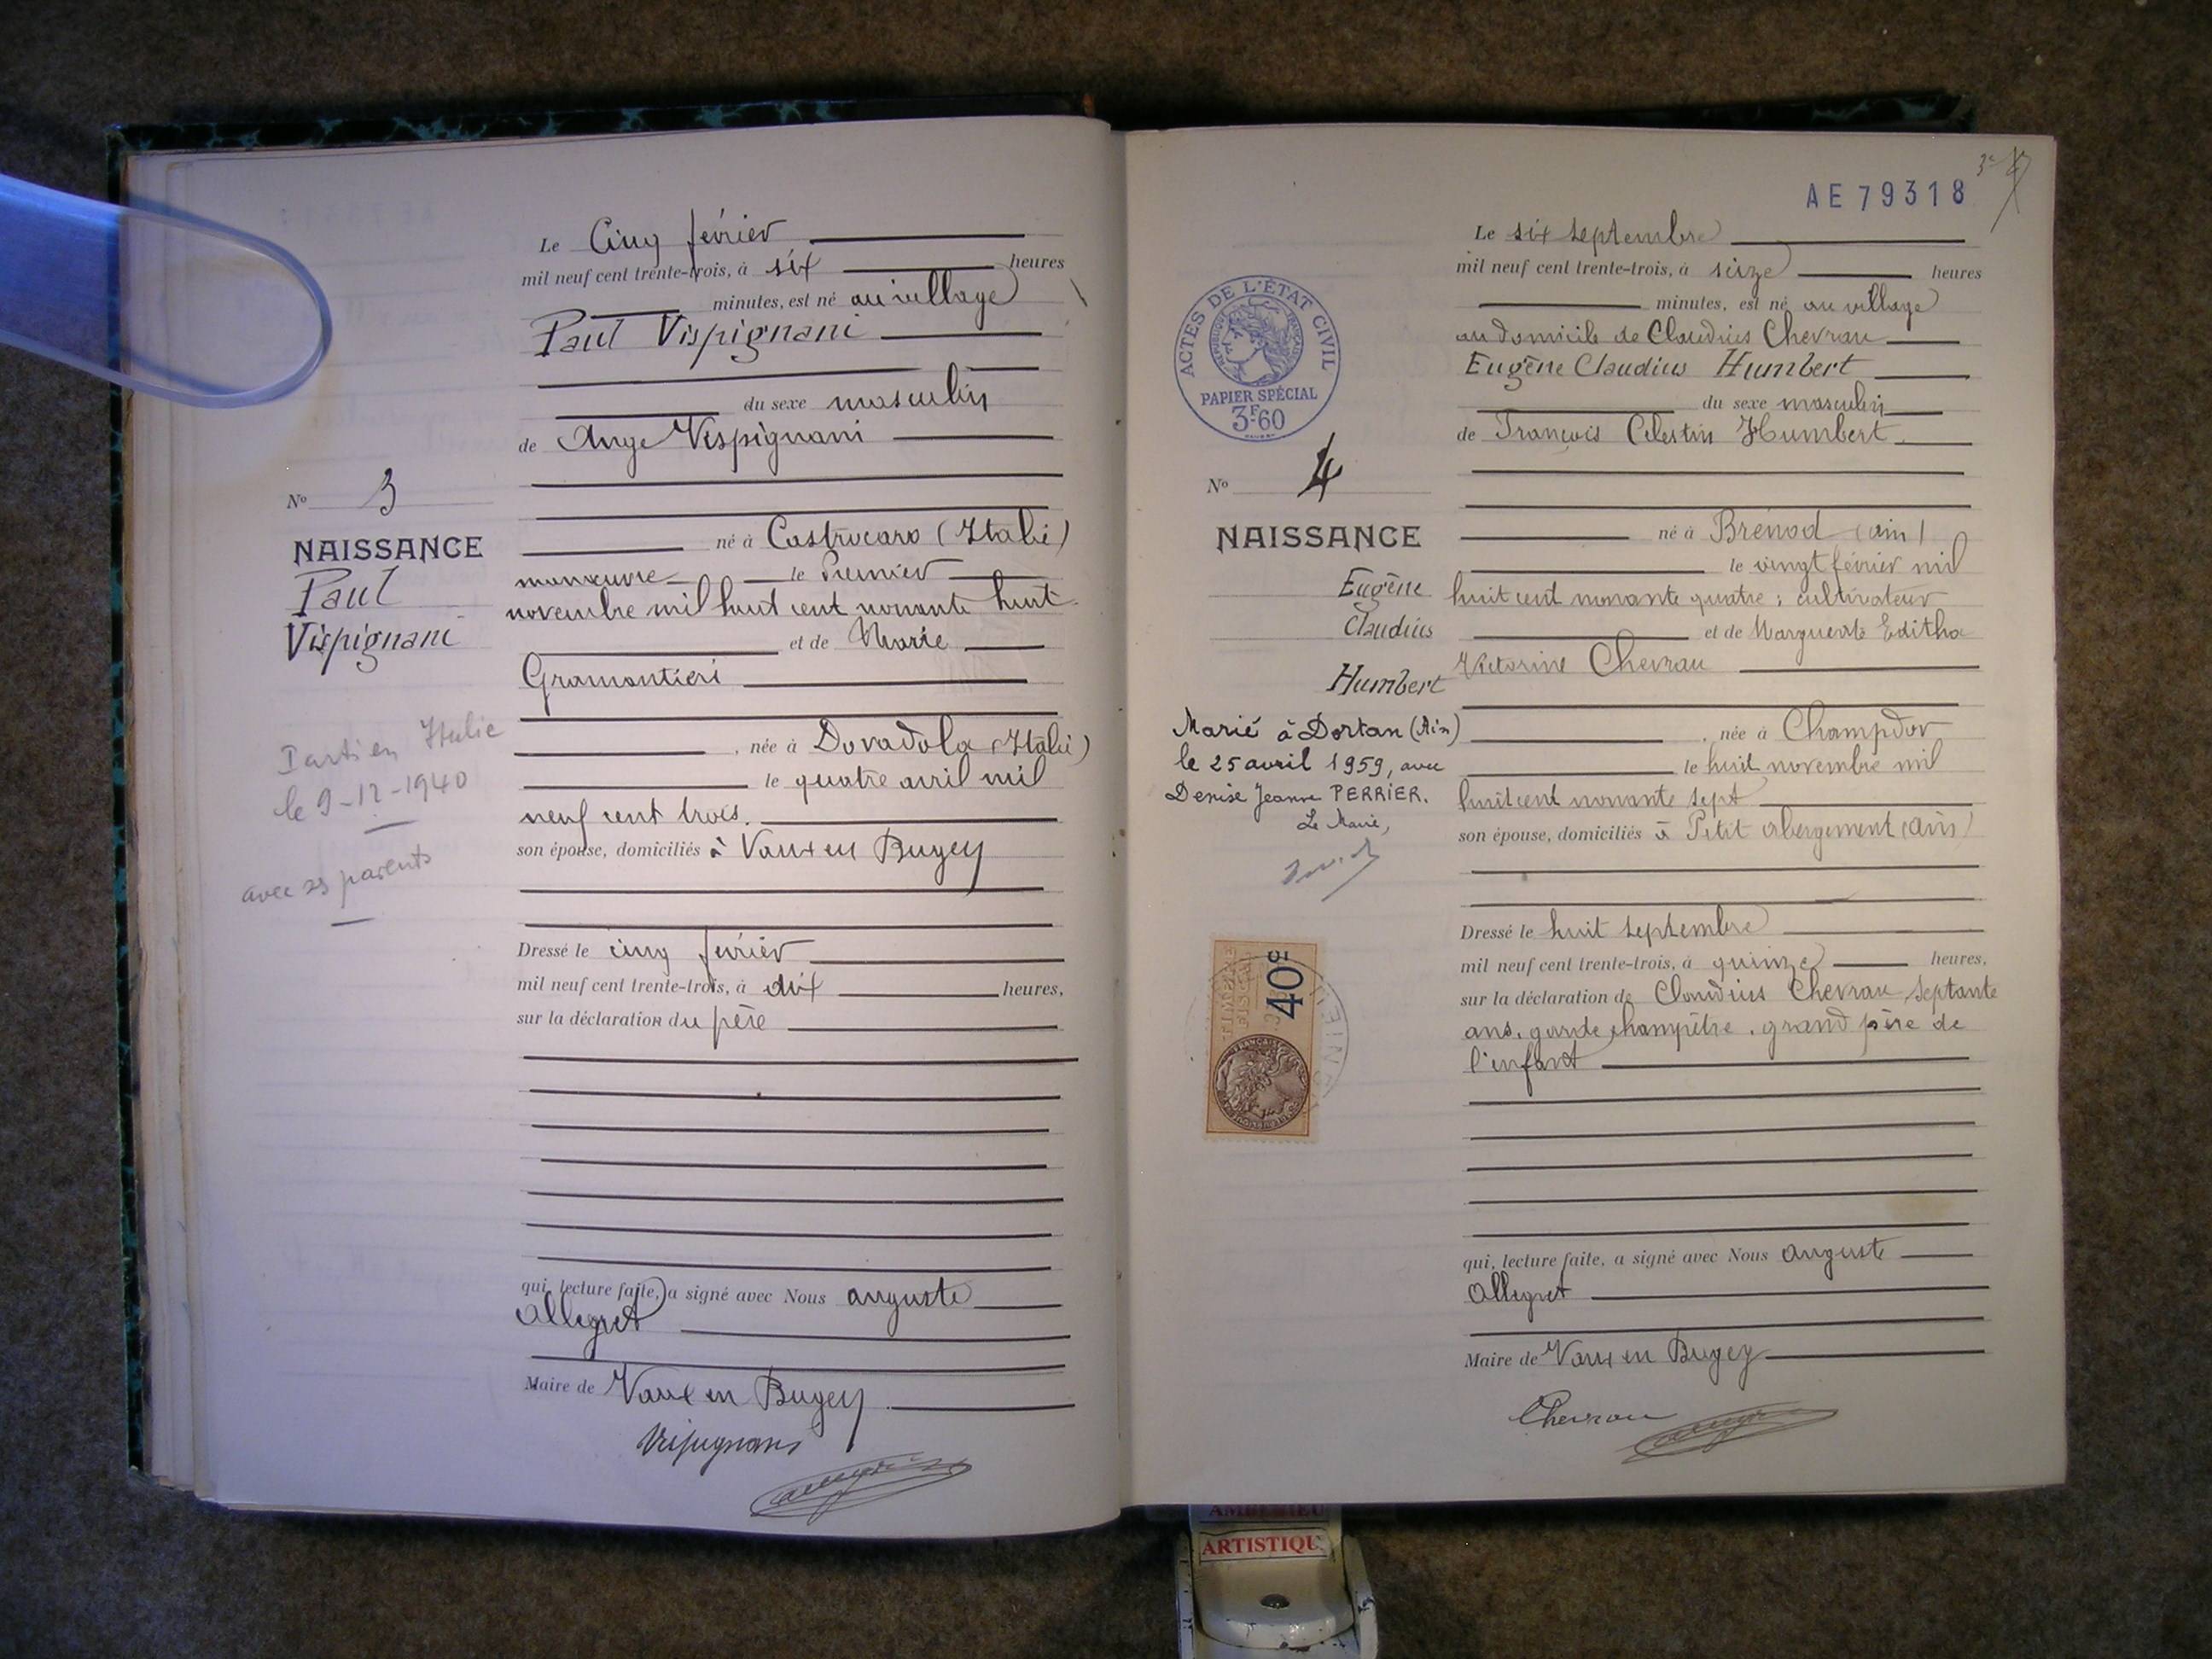 Le Cinq février
mil neuf cent trente-trois, à six heures
minutes, est né au village
Paul Vispignani
du sexe masculin
de Ange Vispignani
No 3
NAISSANCE
Paul
Vispignani
né à Castrocaro (Italie)
manœuvre le Premier
novembre mil huit cent nonante huit
et de Marie
Gramontieri
Parti en Italie
le 9-12-1940
avec ses parents
, née à Dovadola (Italie)
le quatre avril mil
neuf cent trois.
son épouse, domiciliés à Vaux en Bugey
Dressé le cinq février
mil neuf cent trente-trois, à dix heures,
sur la déclaration du père
qui, lecture faite, a signé avec Nous auguste
Allegret
Maire de Vaux en Bugey
Vispignani
AE 79318
3e
Le six septembre
mil neuf cent trente-trois, à seize heures
minutes, est né au village
au domicile de Claudius Chevrau
Eugène Claudius Humbert
du sexe masculin
de François Celestin Humbert
ACTES DE L'ÉTAT CIVIL
RÉPUBLIQUE FRANÇAISE
PAPIER SPÉCIAL
3F60
No 4
NAISSANCE
Eugène
Claudius
Humbert
né à Brénod (ain)
le vingt février mil
huit cent nonante quatre ; cultivateur
et de Marguerite Editha
Victorine Chevrau
Marié à Dortan (Ain)
le 25 avril 1959, avec
Denise Jeanne PERRIER.
Le Maire,
, née à Champdor
le huit novembre mil
huit cent nonante sept
son épouse, domiciliés à Petit abergement (ain)
40c
Dressé le huit septembre
mil neuf cent trente-trois, à quinze heures,
sur la déclaration de Claudius Chevrau septante
ans, garde champêtre, grand père de
l'enfant
qui, lecture faite, a signé avec Nous auguste
Allegret
Maire de Vaux en Bugey
Chevrau
AMBERIEU
ARTISTIQU